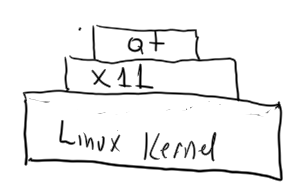 Qt
X11
Linux Kernel